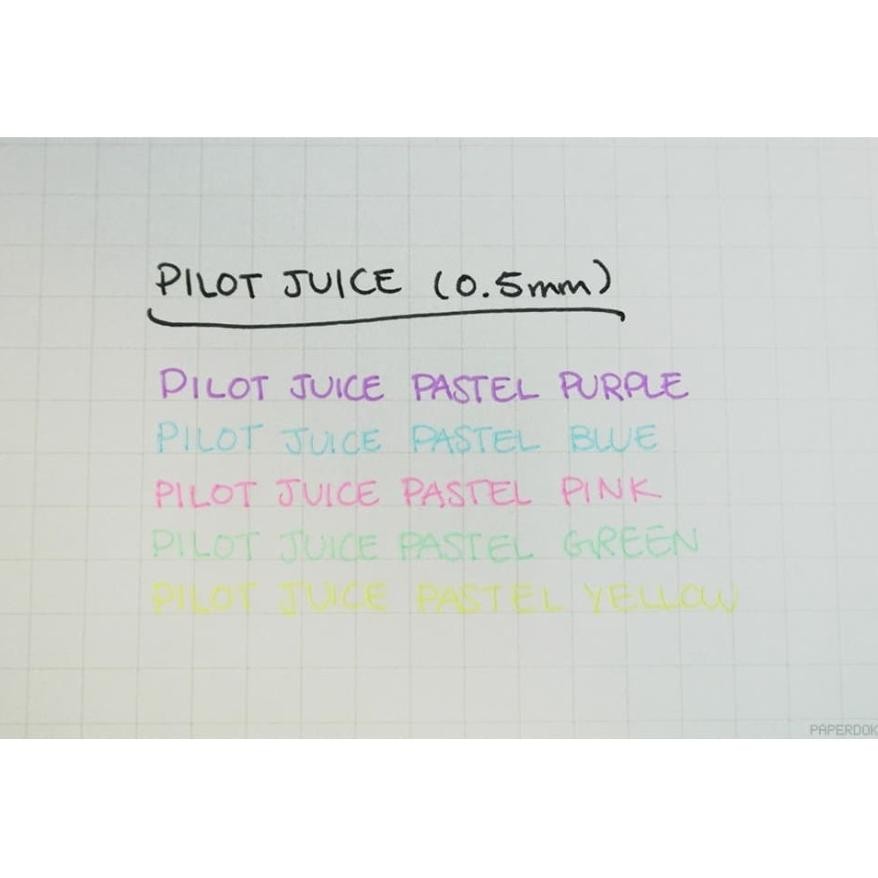 PILOT JUICE (0.5mm)
PILOT JUICE PASTEL PURPLE
PILOT JUICE PASTEL BLUE
PILOT JUICE PASTEL PINK
PILOT JUICE PASTEL GREEN
PILOT JUICE PASTEL YELLOW
PAPERDOK